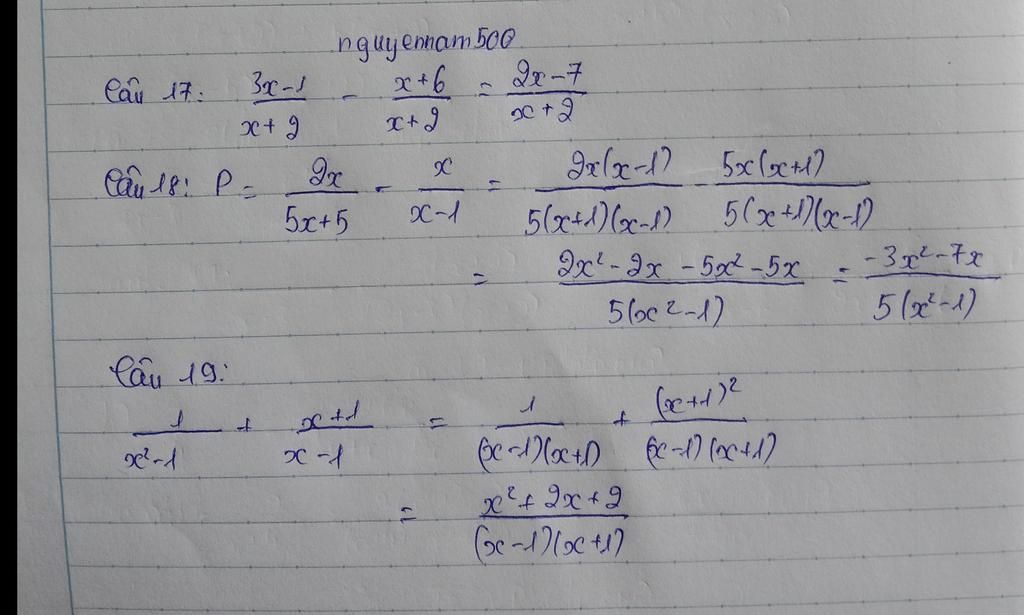 nguyennam500
Câu 17: \frac{3x-1}{x+2} - \frac{x+6}{x+2} = \frac{2x-7}{x+2}
Câu 18: P = \frac{2x}{5x+5} - \frac{x}{x-1} = \frac{2x(x-1)}{5(x+1)(x-1)} - \frac{5x(x+1)}{5(x+1)(x-1)}
= \frac{2x²-2x-5x²-5x}{5(x²-1)} = \frac{-3x²-7x}{5(x²-1)}
Câu 19:
\frac{1}{x²-1} + \frac{x+1}{x-1} = \frac{1}{(x-1)(x+1)} + \frac{(x+1)²}{(x-1)(x+1)}
= \frac{x²+2x+2}{(x-1)(x+1)}